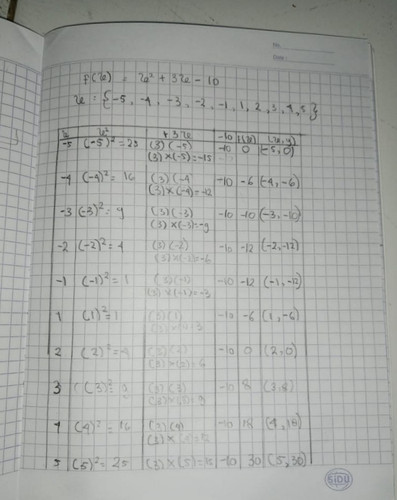 No.
Date:
f(x) = x² + 3x - 10
x = {-5, -4, -3, -2, -1, 1, 2, 3, 4, 5}
x x² +3x -10 f(x) (x, y)
-5 (-5)² = 25 (3)(-5) -10 0 (-5, 0)
(3)×(-5)=-15
-4 (-4)² = 16 (3)(-4 -10 -6 (-4, -6)
(3)×(-4)=-12
-3 (-3)² = 9 (3)(-3) -10 -10 (-3, -10)
(3)×(-3)=-9
-2 (-2)² = 4 (3)(-2) -10 -12 (-2, -12)
(3)×(-2)=-6
-1 (-1)² = 1 (3)(-1) -10 -12 (-1, -12)
(3)×(-1)=-3
1 (1)² = 1 (3)(1) -10 -6 (1, -6)
2 (2)² = 4 -10 0 (2, 0)
3 (3)² = 9 (3)(3) -10 8 (3, 8)
4 (4)² = 16 (3)(4) -10 18 (4, 18)
5 (5)² = 25 (3)×(5)=15 -10 30 (5, 30)
SiDU